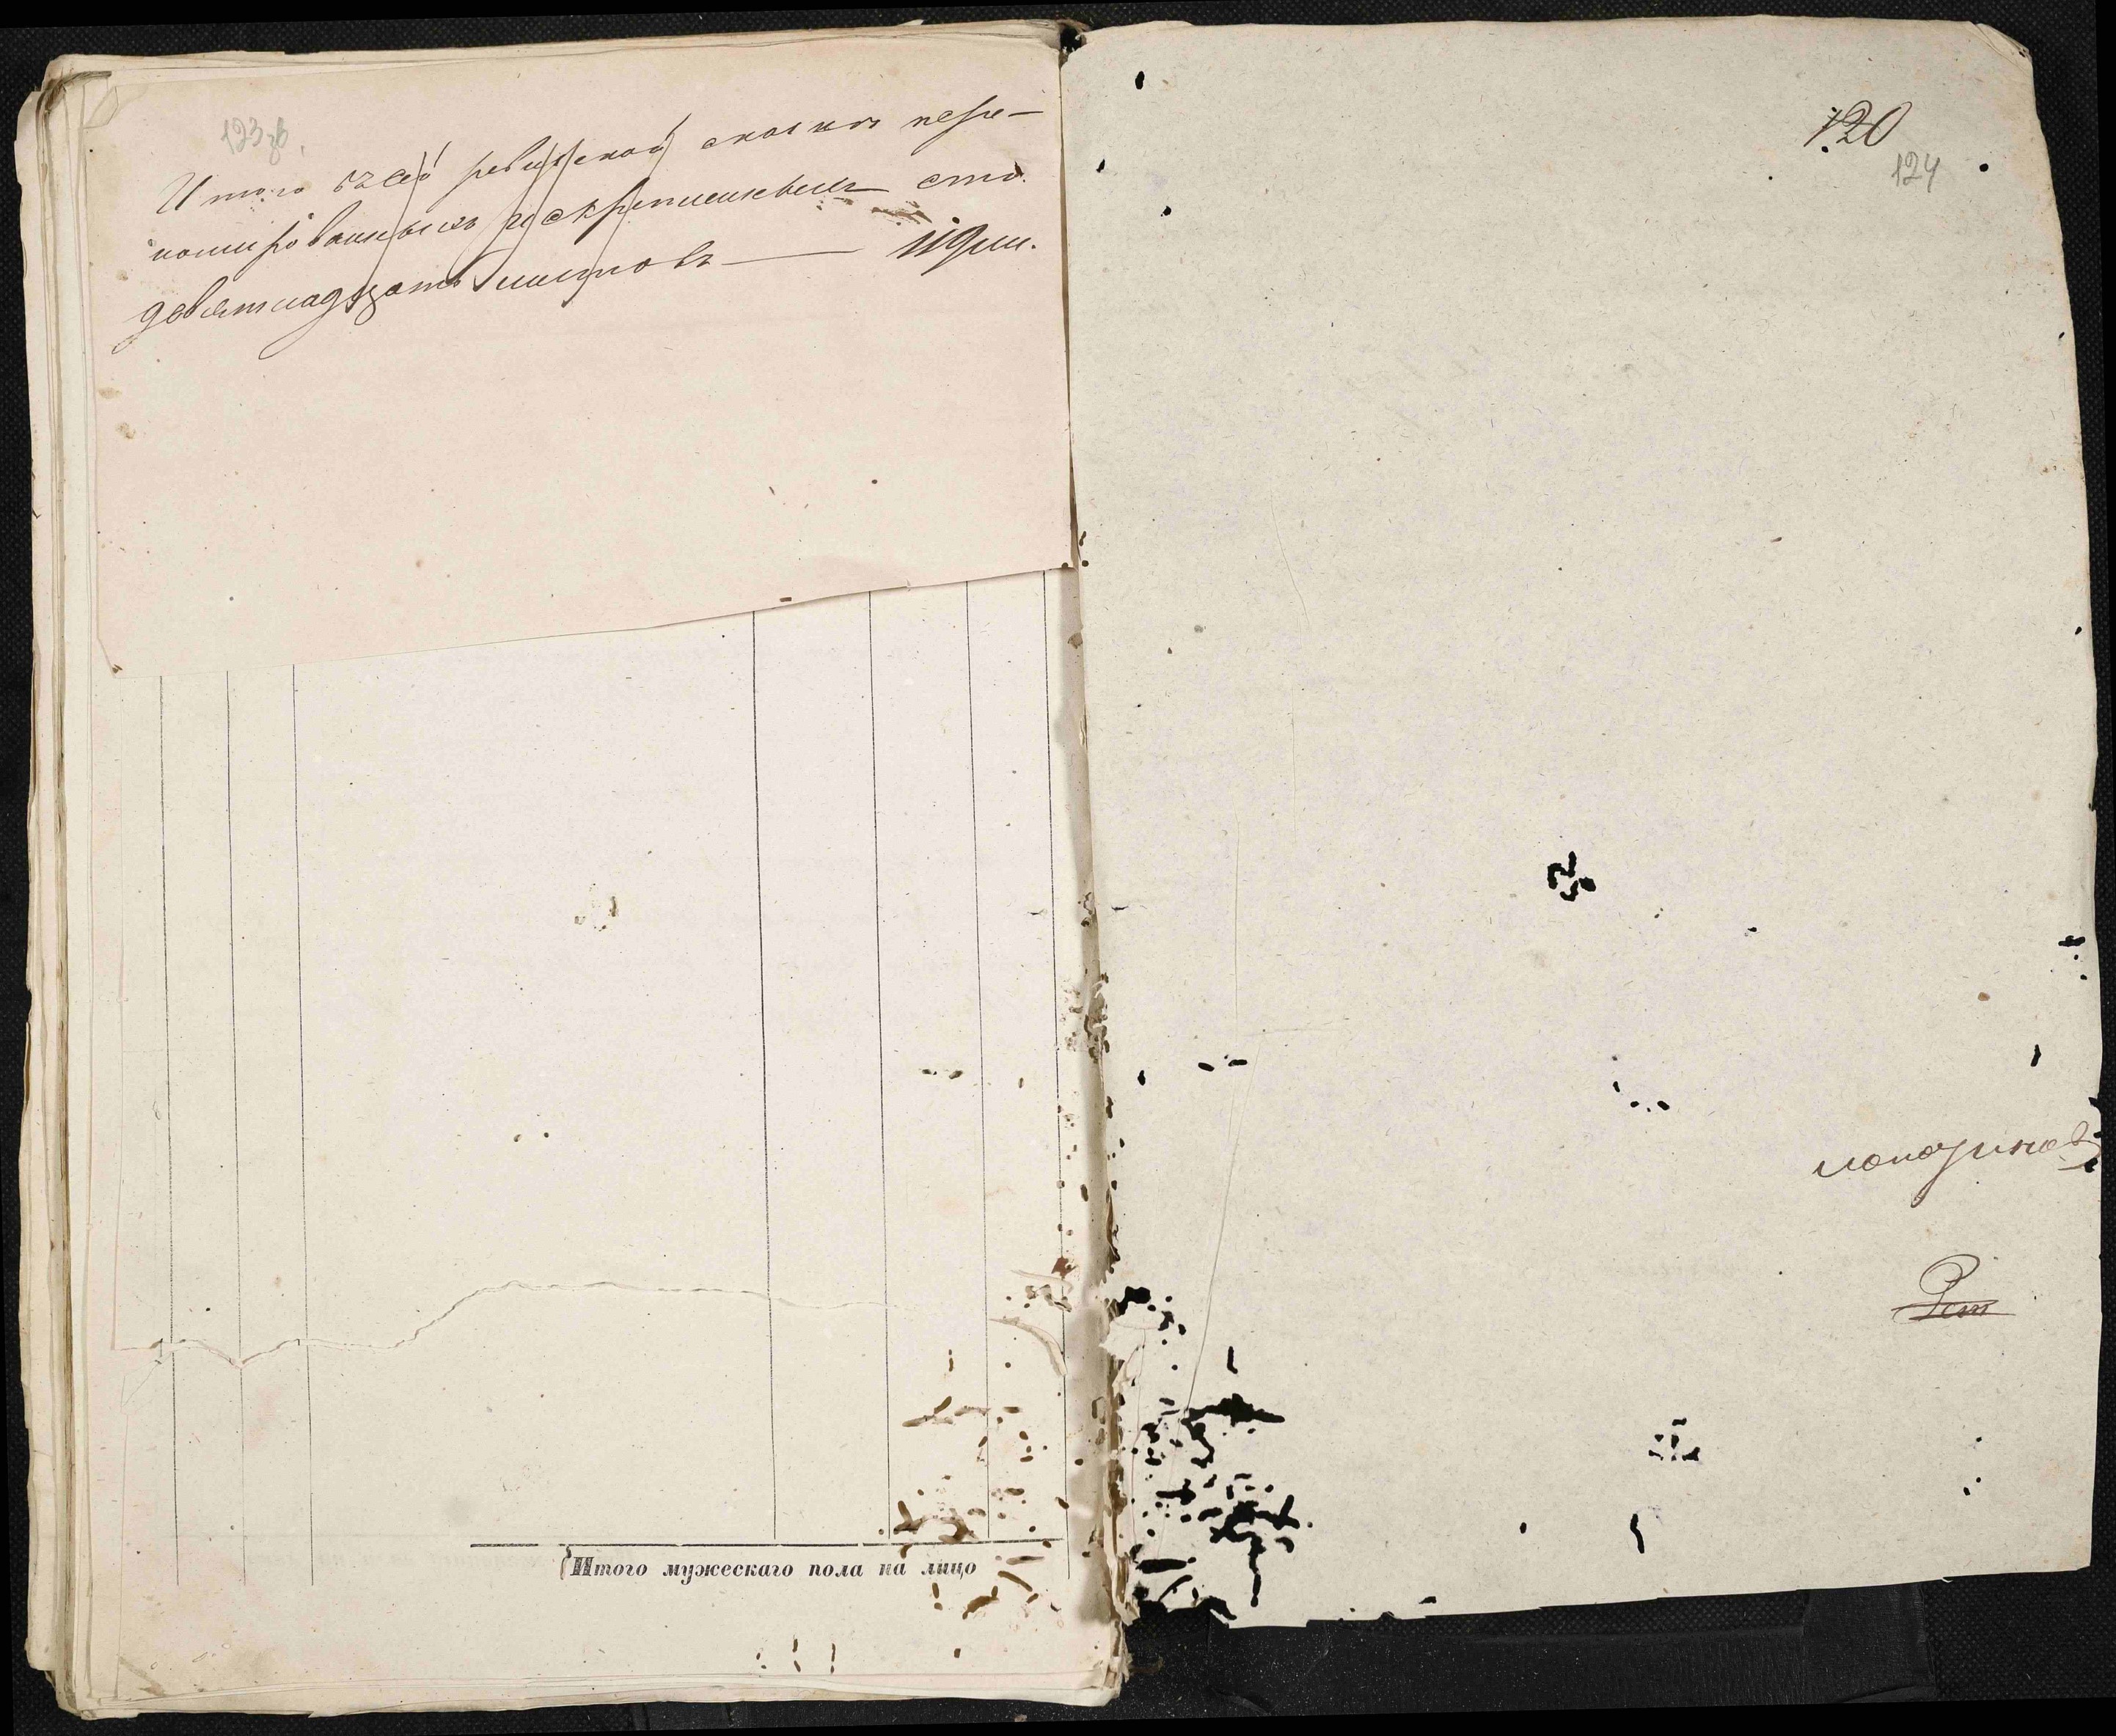 123 об.
Итого въ сей ревизской сказкѣ пере-
номерованныхъ и скрепленныхъ сто
девятнадцать листовъ — 119 лис.
Итого мужескаго пола на лицо
120
124